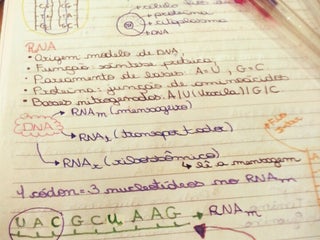 célula
proteína
citoplasma
DNA
RNA
• Origem modelo de DNA,
• Função síntese proteica,
• Pareamento de bases: A=U, G=C
• Proteína: junção de aminoácidos
• Bases nitrogenadas A|U (Uracila)|G|C
DNA
RNAm (mensageiro)
RNAt (transportador)
RNAr (ribossômico)
↳ lê a mensagem
1 códon = 3 nucleotídeos no RNAm
UAC GCU AAG → RNAm